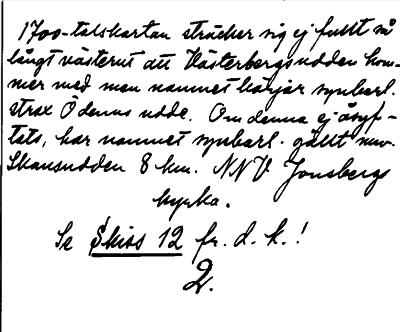 1700-talskartan sträcker sig ej fullt så
långt västerut att Västerbergsudden kom-
mer med men namnet börjar synbarl.
strax Ö denna udde. Om denna ej åsyf-
tats, har namnet synbarl. gällt nuv.
Skansudden 8 km. NNV Jonsbergs
kyrka.
Se Skiss 12 fr. d. k.!
2.